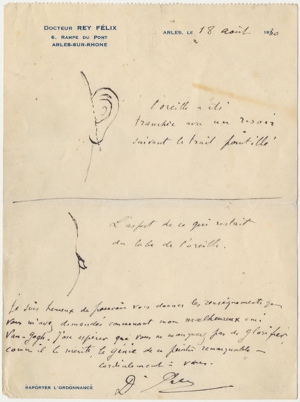 DOCTEUR REY FÉLIX
6, RAMPE DU PONT
ARLES-SUR-RHONE
ARLES, LE 18 août 1930
l'oreille a été
tranchée avec un rasoir
suivant le trait pointillé
L'aspect de ce qui restait
du lobe de l'oreille.
Je suis heureux de pouvoir vous donner les renseignements que
vous m'avez demandés concernant mon malheureux ami
Van-Gogh. J'ose espérer que vous ne manquerez pas de glorifier
comme il le mérite, le génie de ce peintre remarquable
Cordialement à vous.
Dr Rey
REPORTER L'ORDONNANCE